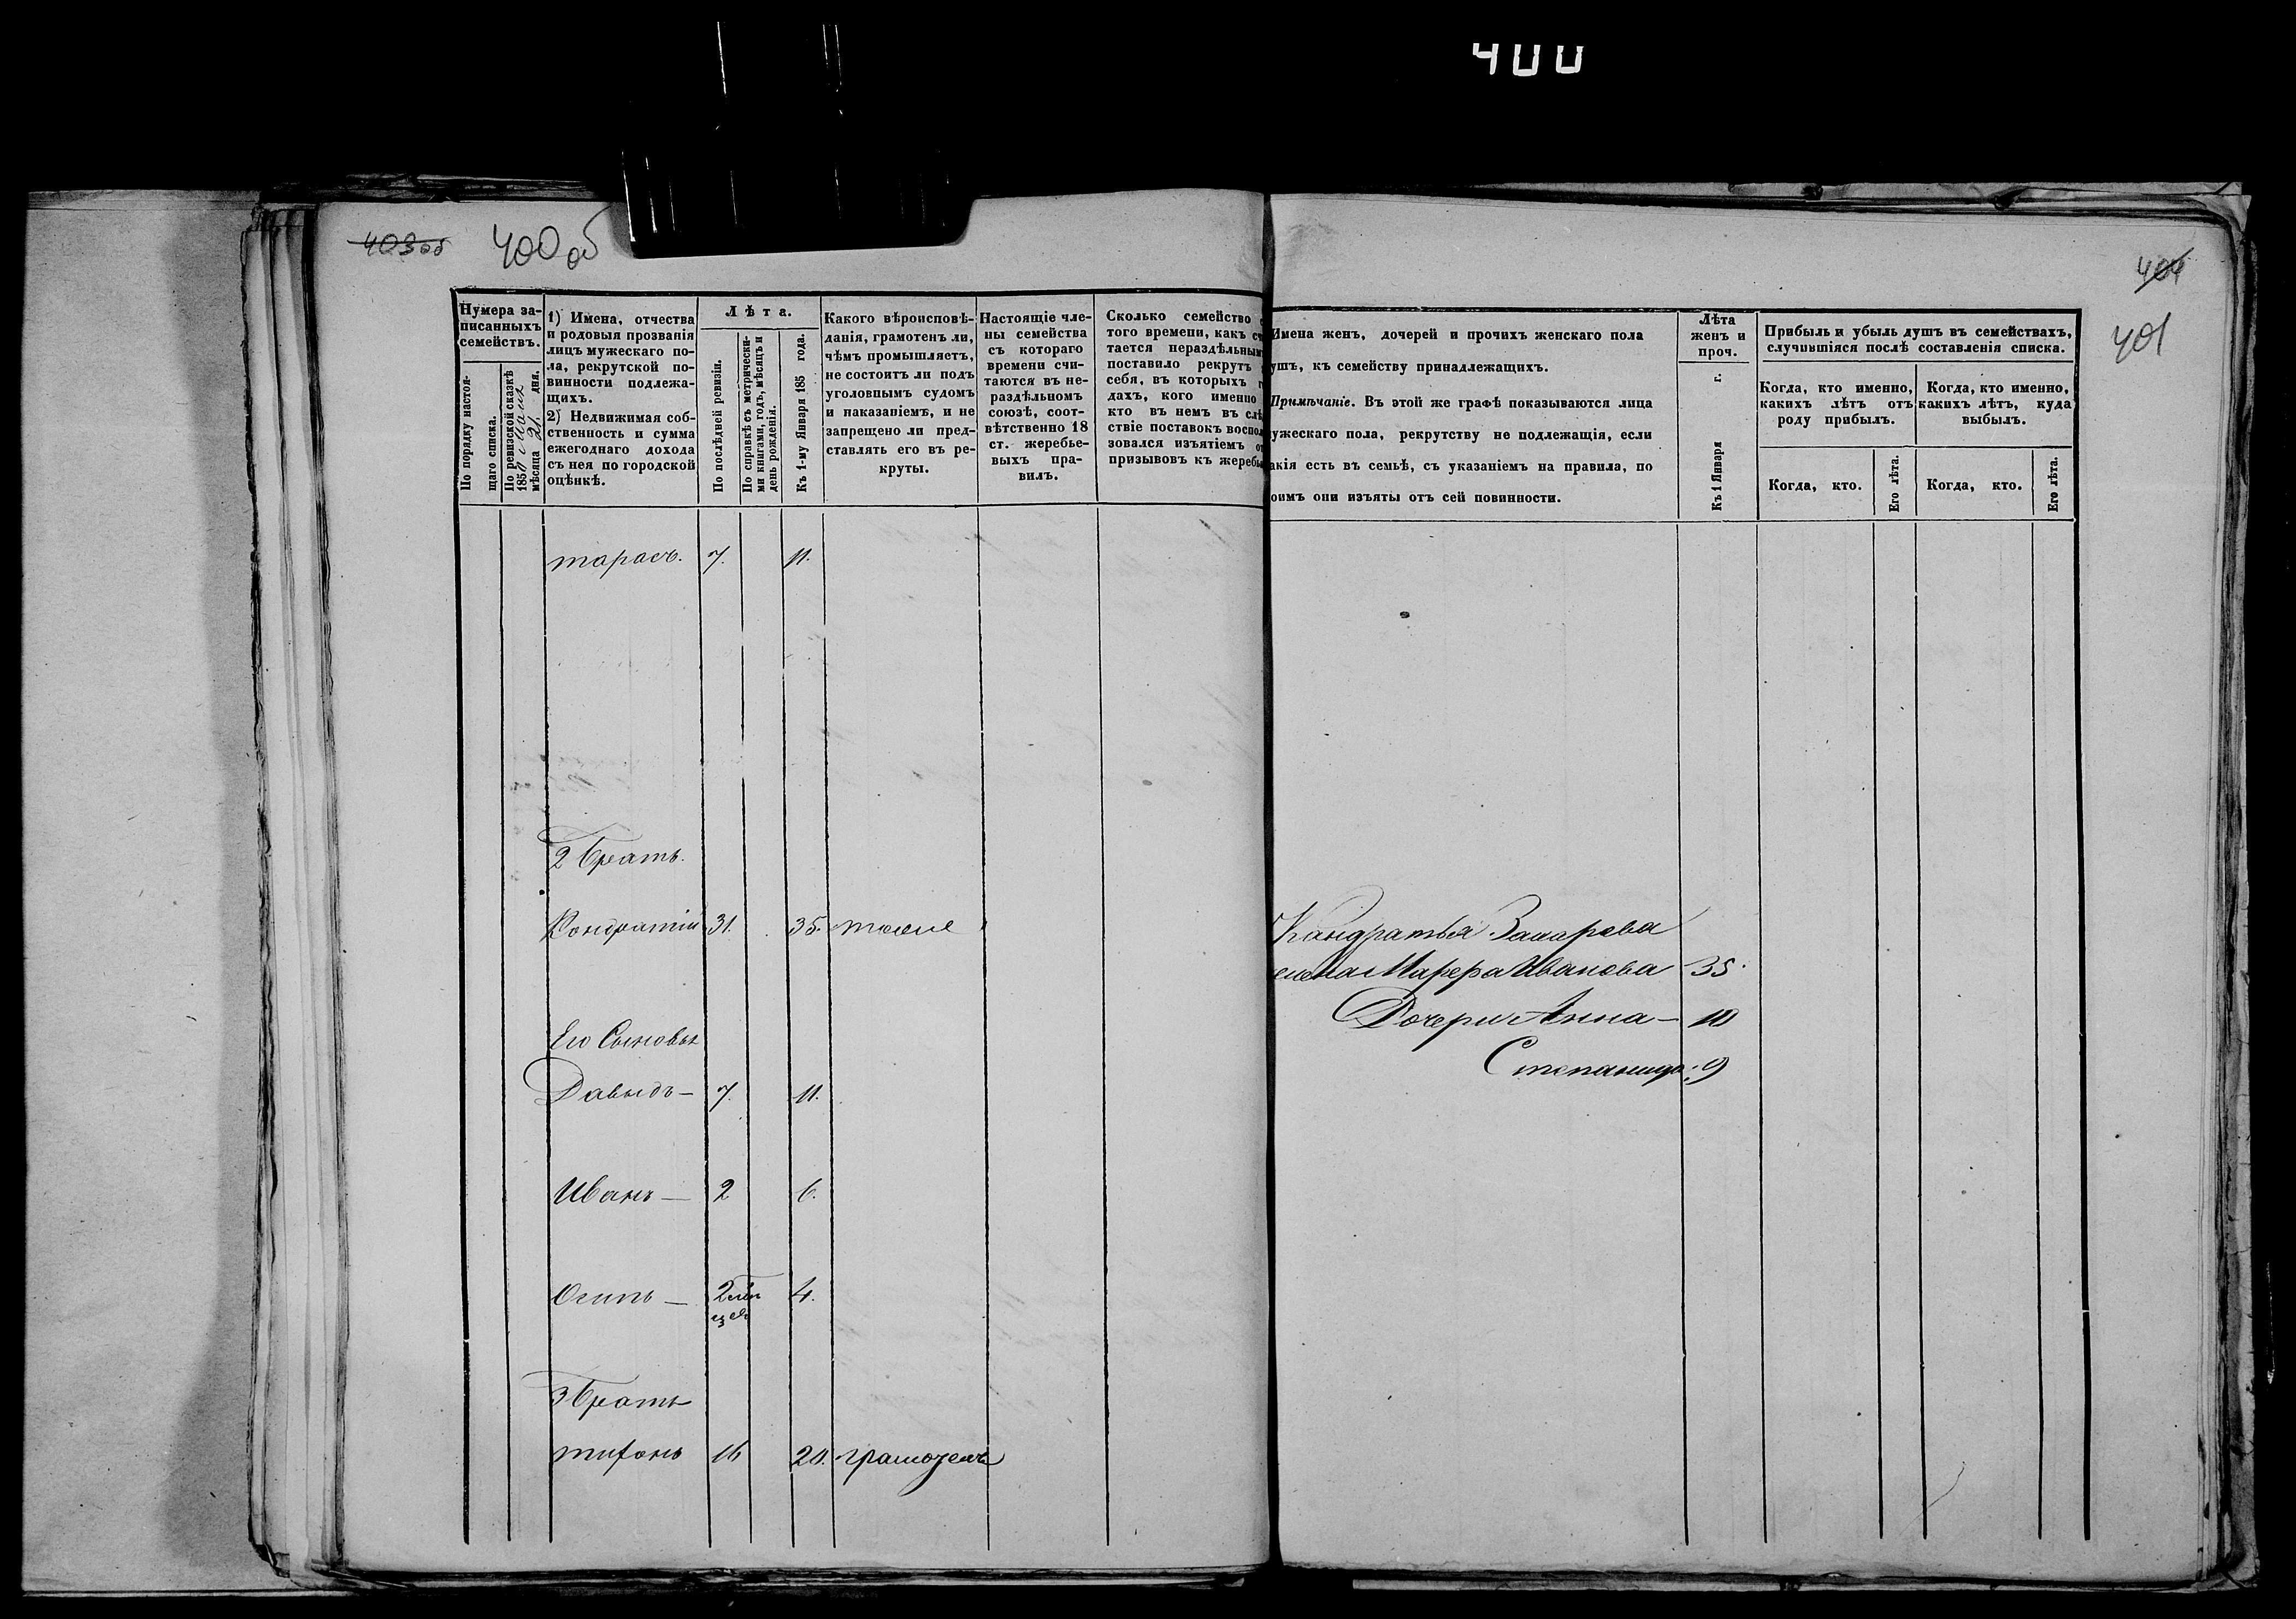 400
403об 400об
Нумера за-
писанныхъ
семействъ.
По порядку настоя-
щаго списка.
По ревизской сказкѣ
185 Мая
мѣсяца 21. дня.
1) Имена, отчества
и родовыя прозванія
лицъ мужескаго по-
ла, рекрутской по-
винности подлежа-
щихъ.
2) Недвижимая соб-
ственность и сумма
ежегоднаго дохода
съ нея по городской
оцѣнкѣ.
Лѣта.
По послѣдней ревизіи.
По справкѣ съ метрически-
ми книгами, годъ, мѣсяцъ и
день рожденія.
Къ 1-му Января 185 года.
Какого вѣроисповѣ-
данія, грамотенъ ли,
чѣмъ промышляетъ,
не состоитъ ли подъ
уголовнымъ судомъ
и наказаніемъ, и не
запрещено ли пред-
ставлять его въ ре-
круты.
Настоящіе чле-
ны семейства
съ котораго
времени счи-
таются въ не-
раздѣльномъ
союзѣ, соот-
вѣтственно 18
ст. жеребье-
выхъ пра-
вилъ.
Сколько семейство с
того времени, какъ сч
тается нераздѣльным
поставило рекрутъ
себя, въ которыхъ г
дахъ, кого именно
кто въ немъ въ слѣ
ствіе поставокъ воспол
зовался изъятіемъ о
призывовъ къ жеребь
тарасъ. 7. 11.
2 братъ.
Кондратій 31. 35. тоже
Его Сыновья
Давыдъ — 7. 11.
Иванъ — 2 6.
Осипъ — 2 мѣс
яцев 4.
3 братъ
тифонъ 16 20. грамотенъ
404
401
Имена женъ, дочерей и прочихъ женскаго пола
ушъ, къ семейству принадлежащихъ.
Примѣчаніе. Въ этой же графѣ показываются лица
ужескаго пола, рекрутству не подлежащія, если
акія есть въ семьѣ, съ указаніемъ на правила, по
оимъ они изъяты отъ сей повинности.
Лѣта
женъ и
проч.
Къ 1 Января г.
Прибыль и убыль душъ въ семействахъ,
случившіяся послѣ составленія списка.
Когда, кто именно,
какихъ лѣтъ отъ
роду прибылъ.
Когда, кто именно,
какихъ лѣтъ, куда
выбылъ.
Когда, кто.
Его лѣта.
Когда, кто.
Его лѣта.
Кандратья Захарова
жена Марфа Иванова 35.
Дочери Анна — 10
Степанида: 9